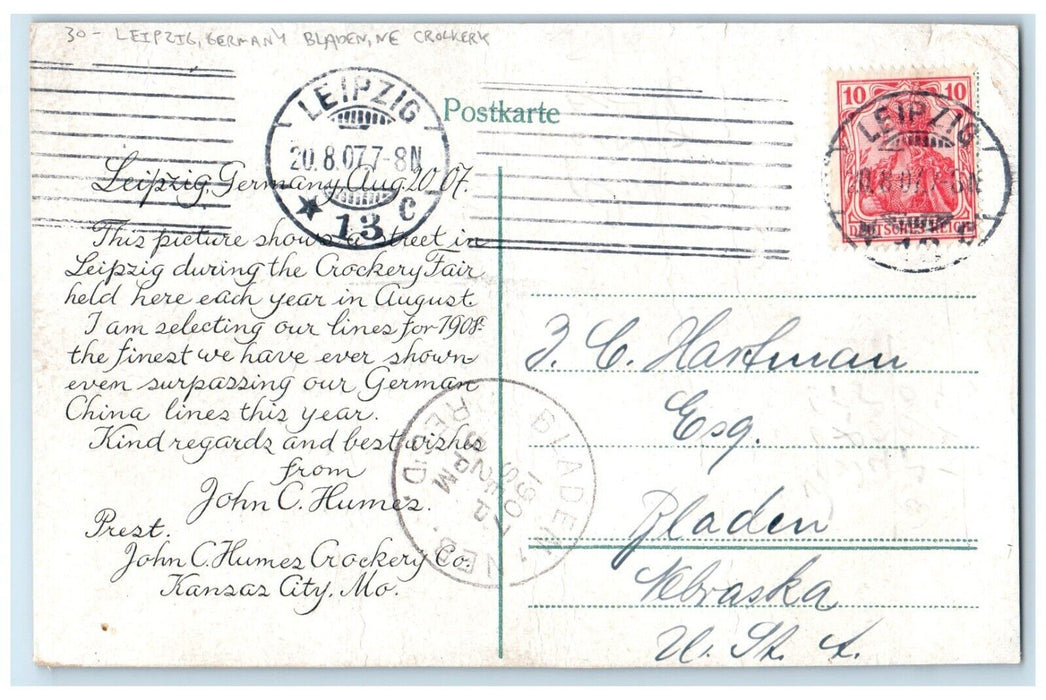 30- LEIPZIG, GERMANY BLADEN, NE CROCKERY
LEIPZIG
20.8.07.7-8N
★ 13 C
Postkarte
10 10
DEUTSCHES REICH
LEIPZIG
Leipzig, Germany, Aug. 20. 07.
This picture shows a street in
Leipzig during the Crockery Fair
held here each year in August.
I am selecting our lines for 1908-
the finest we have ever shown-
even surpassing our German
China lines this year.
Kind regards and best wishes
from
John C. Humes.
Prest.
John C. Humes Crockery Co.
Kansas City, Mo.
BLADEN, NEB.
REC'D.
1907
3 PM
C. Hartman
Esq.
Bladen
Nebraska
U. St. A.